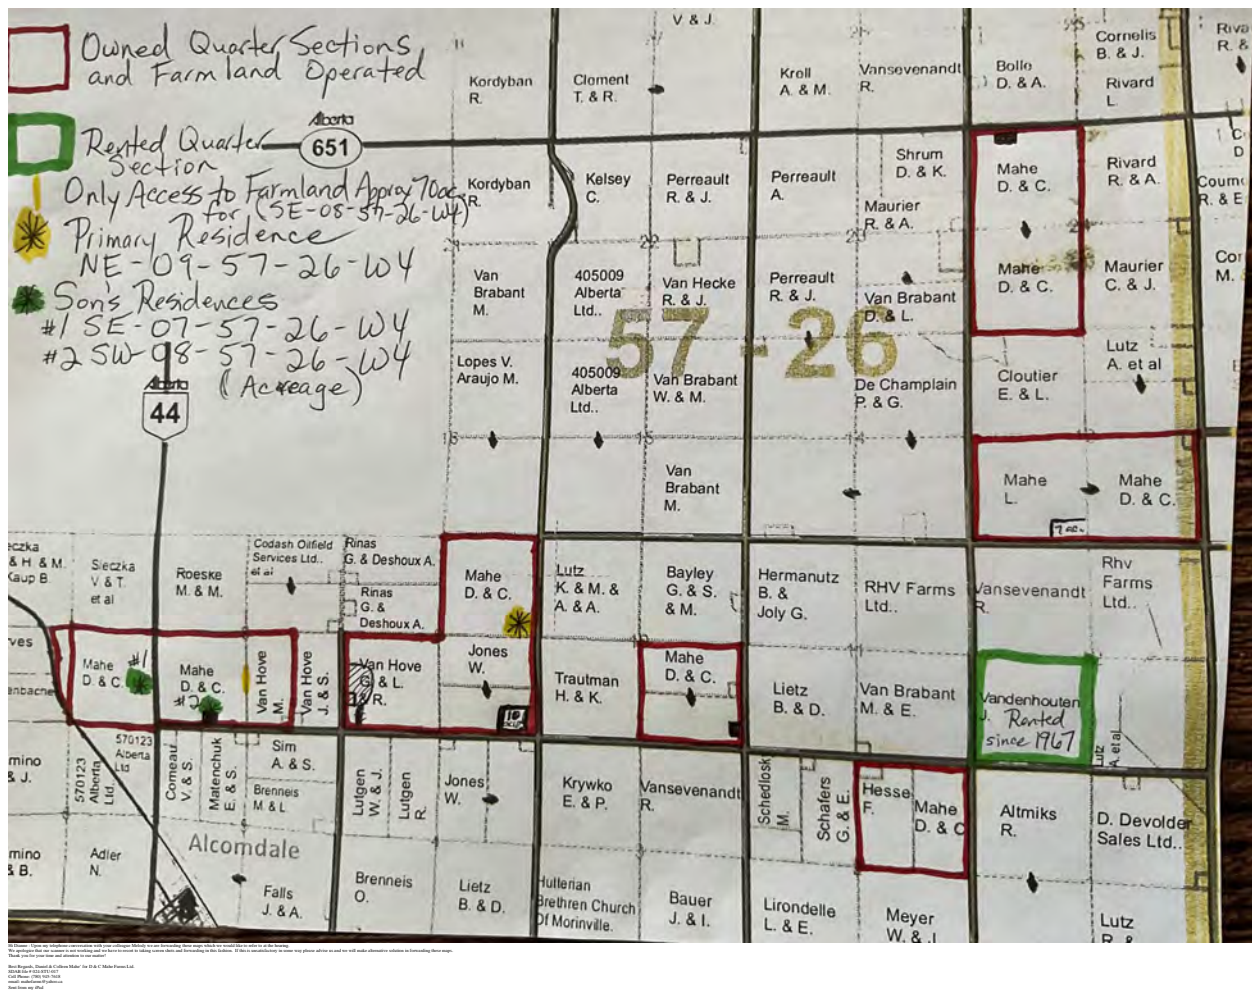 Owned Quarter Sections
and Farmland Operated
Rented Quarter
Section
Only Access to Farmland Approx 70ac.
for (SE-08-57-26-W4)
Primary Residence
NE-09-57-26-W4
Son's Residences
#1 SE-07-57-26-W4
#2 SW-08-57-26-W4
(Acreage)
Alberta
651
Alberta
44
V & J.
Kordyban
R.
Cloment
T. & R.
Kroll
A. & M.
Vansevenandt
R.
Bollo
D. & A.
Cornelis
B. & J.
Rivard
L.
Riva
R. &
Kordyban
R.
Kelsey
C.
Perreault
R. & J.
Perreault
A.
Shrum
D. & K.
Maurier
R. & A.
Mahe
D. & C.
Rivard
R. & A.
Courno
R. & E
Van
Brabant
M.
405009
Alberta
Ltd..
Van Hecke
R. & J.
Perreault
R. & J.
Van Brabant
D. & L.
Mahe
D. & C.
Maurier
C. & J.
Cor
M.
57 - 26
Lopes V.
Araujo M.
405009
Alberta
Ltd..
Van Brabant
W. & M.
De Champlain
P. & G.
Cloutier
E. & L.
Lutz
A. et al
Van
Brabant
M.
Mahe
L.
Mahe
D. & C.
7 ac.
eczka
& H & M.
Kaup B.
Sieczka
V & T.
et al
Roeske
M. & M.
Codash Oilfield
Services Ltd..
et al
Rinas
G. & Deshoux A.
Rinas
G. &
Deshoux A.
Mahe
D. & C.
Lutz
K. & M. &
A. & A.
Bayley
G. & S.
& M.
Hermanutz
B. &
Joly G.
RHV Farms
Ltd..
Vansevenandt
R.
Rhv
Farms
Ltd..
rves
enbache
Mahe
D. & C.
#1
Mahe
D. & C.
#2
Van Hove
M.
Van Hove
J. & S.
Van Hove
G. & L.
& R.
Jones
W.
10
Trautman
H. & K.
Mahe
D. & C.
Lietz
B. & D.
Van Brabant
M. & E.
Vandenhouten
J.
Rented
since 1967
Lutz
A. et al
mino
& J.
570123
Alberta
Ltd..
570123
Alberta
Ltd
Comeau
V. & S.
Matenchuk
E. & S.
Sim
A. & S.
Brenneis
M. & L
Lutgen
W. & J.
Lutgen
R.
Jones
W.
Krywko
E. & P.
Vansevenandt
R.
Schedlosk
M.
Schafers
G. & E.
Hesse
F.
Mahe
D. & C
Altmiks
R.
D. Devolder
Sales Ltd..
Alcomdale
mino
& B.
Adler
N.
Falls
J. & A.
Brenneis
O.
Lietz
B. & D.
Hutterian
Brethren Church
Of Morinville.
Bauer
J. & I.
Lirondelle
L. & E.
Meyer
W. & J.
Lutz
R. &
Thank you for your time and attention to our matter!
Sent from my iPad